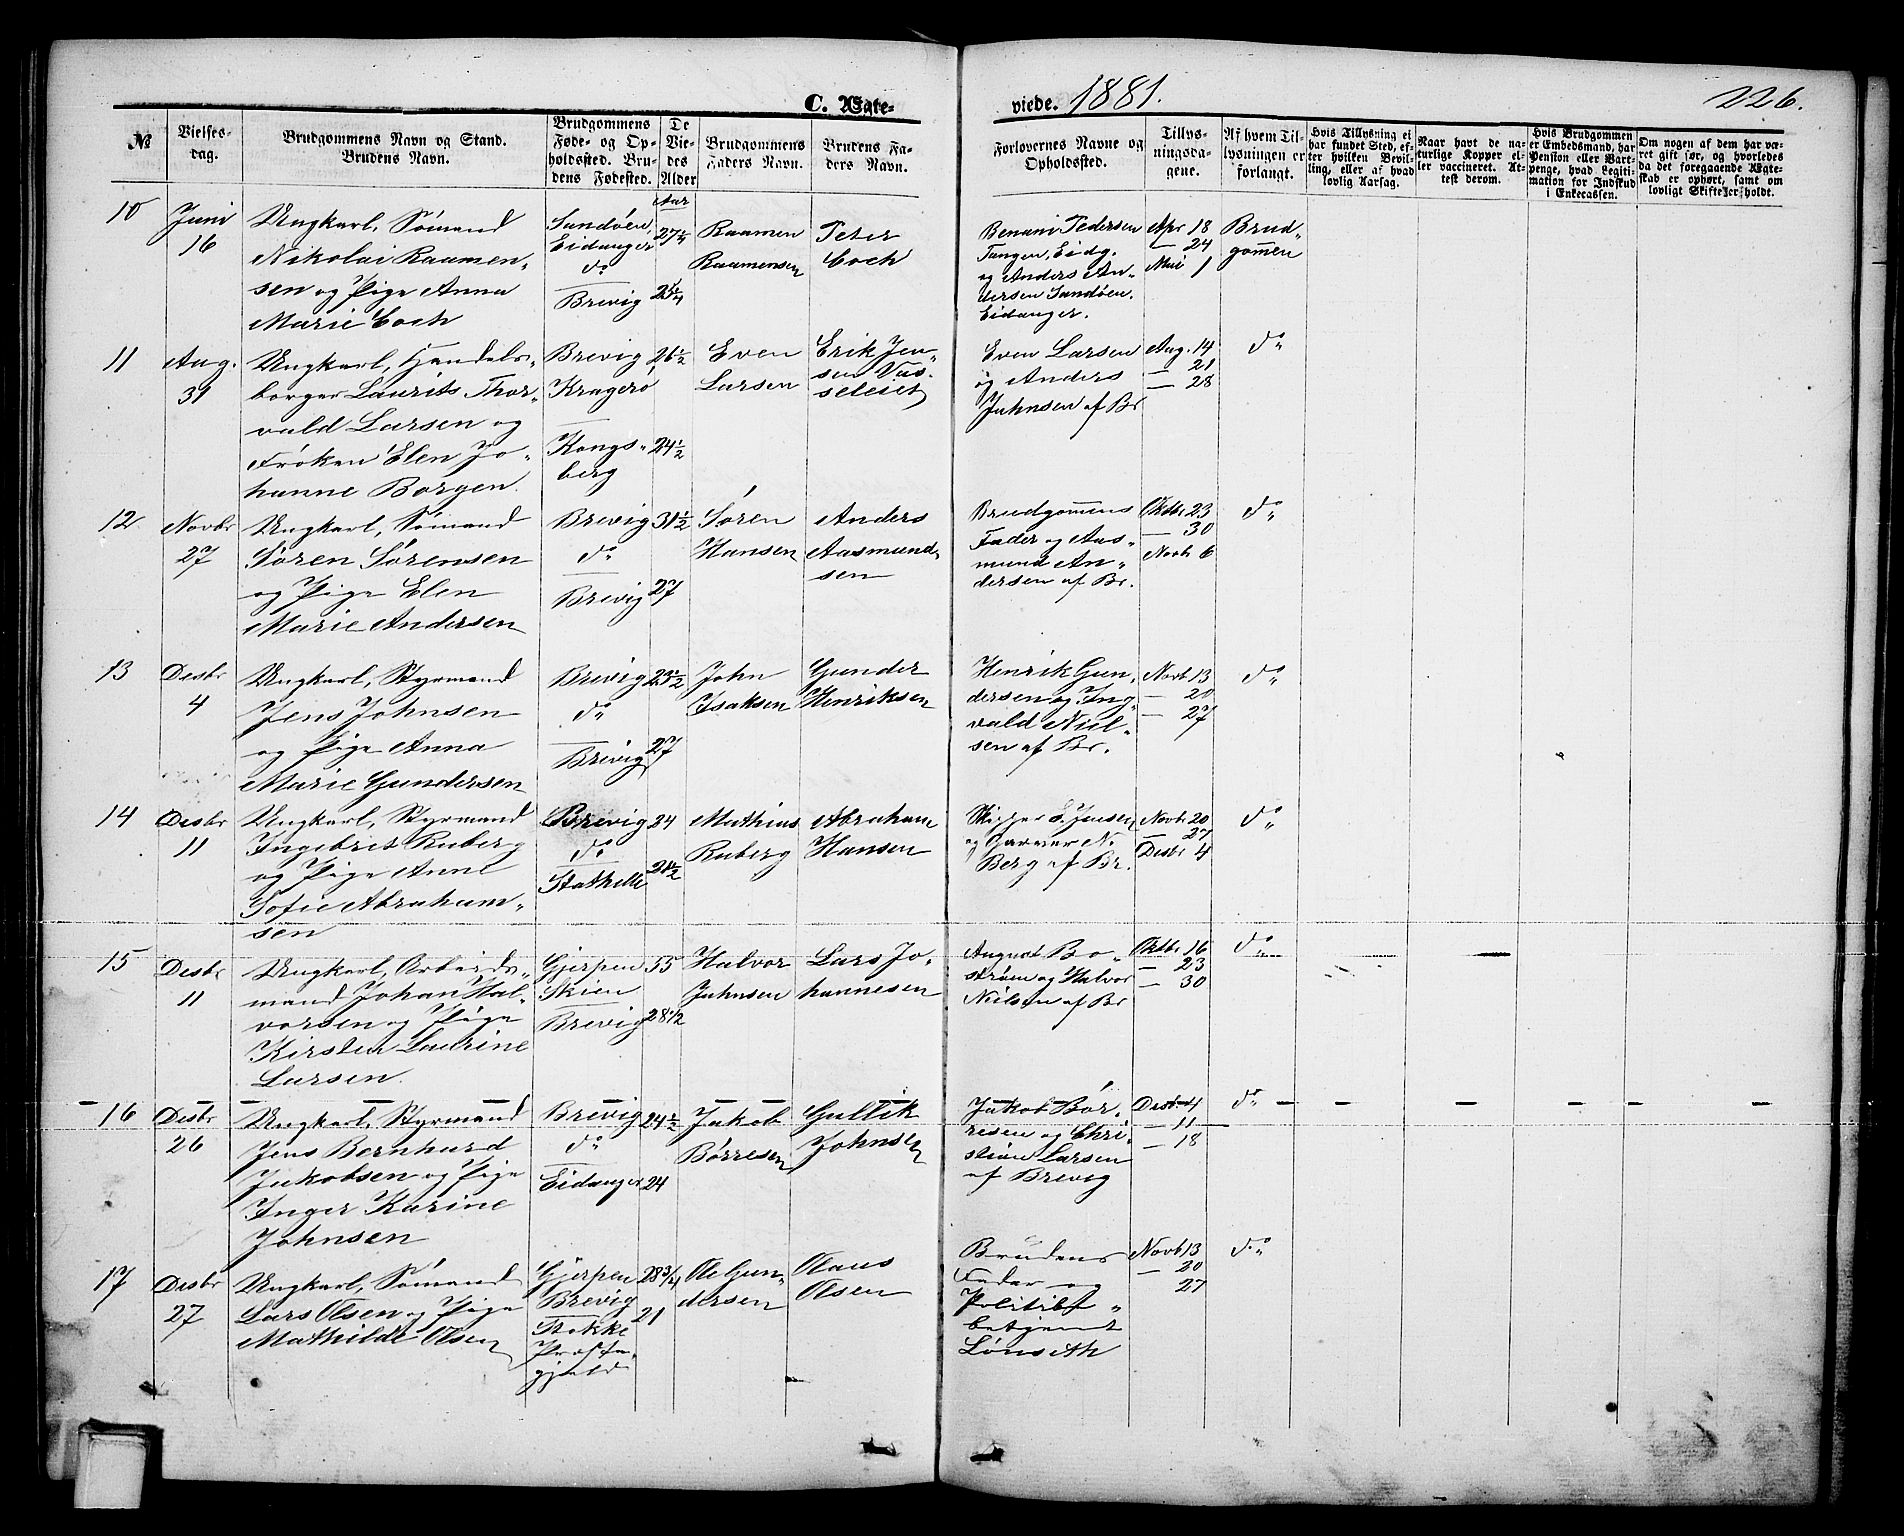 C. Ægte-
viede. 1881.
226.
№
Vielses-
dag.
Brudgommens Navn og Stand.
Brudens Navn.
Brudgommens
Føde- og Op-
holdssted. Bru-
dens Fødested.
De
Vie-
des
Alder
Brudgommens
Faders Navn.
Brudens Fa-
ders Navn.
Forlovernes Navne og
Opholdssted.
Tillys-
ningsda-
gene.
Af hvem Til-
lysningen er
forlangt.
Hvis Tillysning ei
har fundet Sted, ef-
ter hvilken Bevil-
ling, eller af hvad
lovlig Aarsag.
Naar havt de na-
turlige Kopper el-
ler vaccineret. At-
test derom.
Hvis Brudgommen
er Embedsmand, har
Pension eller Vart-
penge, hvad Legiti-
mation for Indskud
i Enkecassen.
Om nogen af dem har væ-
ret gift før, og hvorledes
da det foregaaende Ægte-
skab er ophørt, samt om
lovligt Skifte er holdt.
10
Juni
16
Ungkarl, Sømand
Nikolai Raamen-
sen og Pige Anna
Marie Coch
Sandøen,
Eidanger
do
Brevig
Aar
27 1/4
25 1/4
Raamen
Raamensen
Peter
Coch
Benani Pedersen
Tangen, Eidg.
og Anders An-
dersen Sandøen.
Eidanger.
Apr 18
— 24
Mai 1
Brud-
gomen
11
Aug.
31
Ungkarl, Handels-
borger Laurits Thor-
vald Larsen og
Frøken Elen Jo-
hanne Borgen.
Brevig
Kragerø
Kongs-
berg
26 1/2
24 1/2
Even
Larsen
Erik Jen-
sen
Even Larsen
og Anders
Johnsen af Br
Aug. 14
— 21
— 28
do
12
Novbr
27
Ungkarl, Sømand
Søren Sørensen
og Pige Elen
Marie Andersen
Brevig
do
Brevig
31 1/2
27
Søren
Hansen
Anders
Aasmund-
sen
Brudgommens
Fader og Aas-
mund An-
dersen af Br.
Oktbr 23
— 30
Novb 6
do
13
Desbr
4
Ungkarl, Styrmand
Jens Johnsen
og Pige Anna
Marie Gundersen
Brevig
do
Brevig
23 1/2
27
John
Isaksen
Gunder
Henriksen
Henrik Gun-
dersen og Ing-
vald Niel-
sen af Br.
Novb 13
— 20
— 27
do
14
Desbr
11
Ungkarl, Styrmand
Ingebret Ruberg
og Pige Anne
Sofie Abraham-
sen
Brevig
do
Stathelle
24
21 1/2
Mathias
Ruberg
Abraham
Hansen
Skipper S. Jensen
og Garver N.
Berg af Br.
Novb. 20
— 27
Desbr 4
do
15
Desbr
11
Ungkarl, Arbeids-
mand Johan Hal-
vorsen og Pige
Kirsten Laurine
Larsen.
Gjerpen
Skien
Brevig
55
28 1/2
Halvor
Johnsen
Lars Jo-
hannesen
August Bo-
strøm og Halvor
Nielsen af Br
Oktbr 16
— 23
— 30
do
16
Desbr
26
Ungkarl, Styrmand
Jens Bernhard
Jakobsen og Pige
Inger Karine
Johnsen
Brevig
do
Eidanger
24 1/2
24
Jakob
Børresen
Gullik
Johnsen
Jakob Bør-
resen og Chri-
stian Larsen
af Brevig
Desb. 4
— 11
— 18
do
17
Desbr
27
Ungkarl, Sømand
Lars Olsen og Pige
Mathilde Olsen
Gjerpen
Brevig
Stokke
Præste-
gjeld
28 3/4
21
Ole Gun-
dersen
Olaus
Olsen
Brudens
Fader og
Politibe-
betjent
Lønseth
Novb 13
— 20
27
do